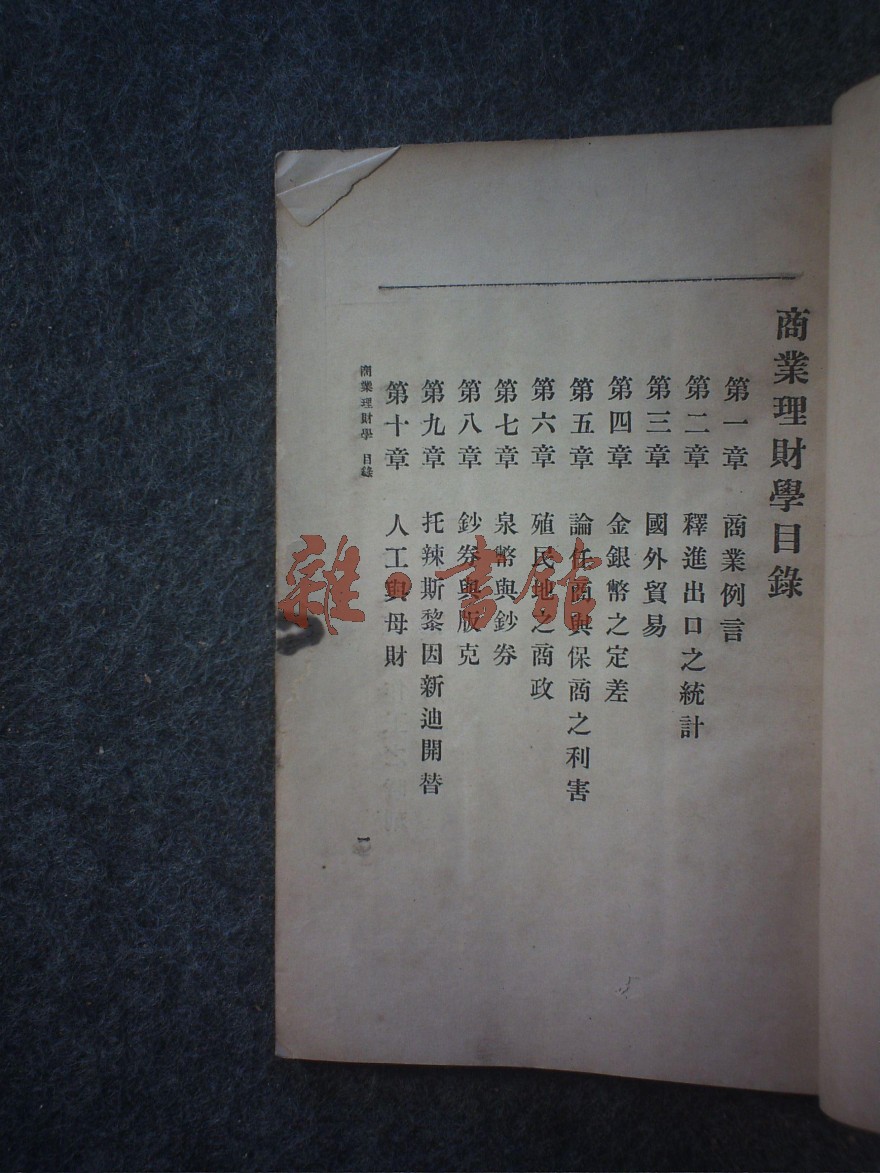 商業理財學目錄
第一章 商業例言
第二章 釋進出口之統計
第三章 國外貿易
第四章 金銀幣之定差
第五章 論任商與保商之利害
第六章 殖民地之商政
第七章 泉幣與鈔券
第八章 鈔券與版克
第九章 托辣斯黎因新迪開替
第十章 人工與母財
商業理財學 目錄
一
雜·書館
5